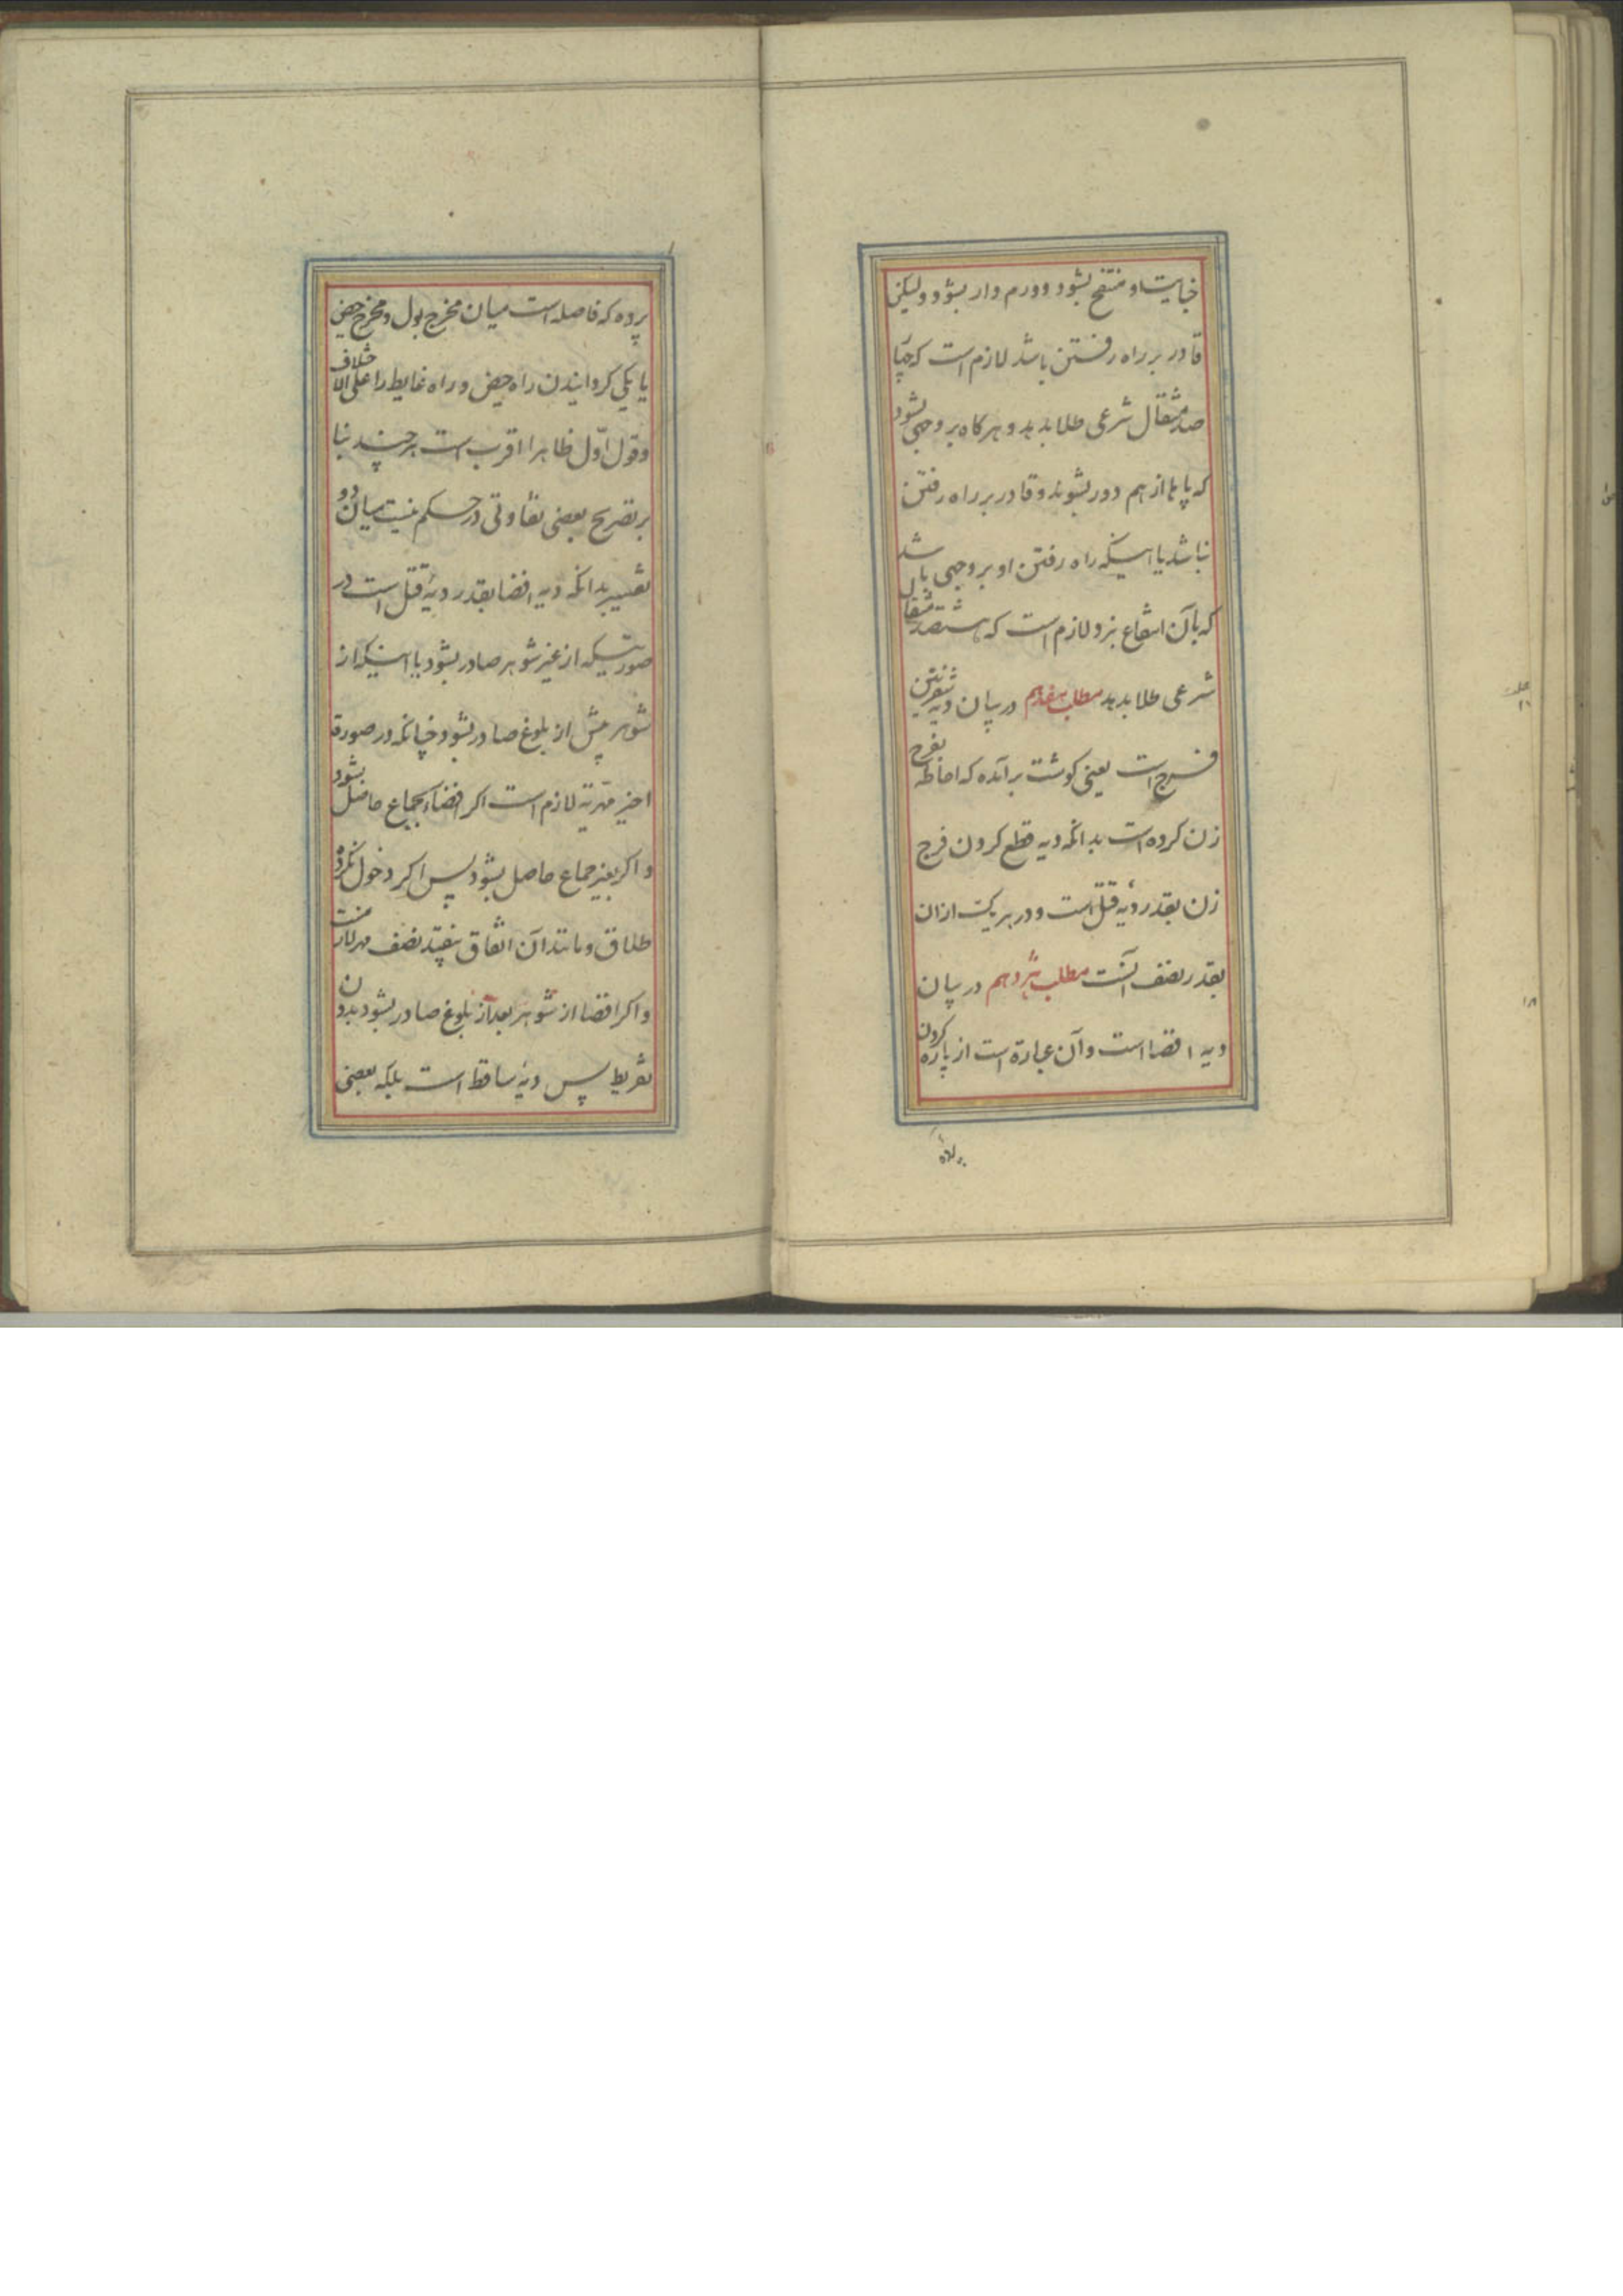 خایت او منتفخ بشود و ورم دار بشود و لیکن
قادر بر راه رفتن باشد لازم است که چهار
صد مثقال شرعی طلا بدهد و هرگاه بر وجهی بشود
که پاها از هم دور بشوند و قادر بر راه رفتن
نباشد یا اینکه راه رفتن او بر وجهی باشد
که بآن انتفاع نبرد لازم است که هشتصد مثقال
شرعی طلا بدهد مطلب هفدهم در بیان دیه شفرتین
فرج است یعنی کوشت برآمده که احاطه بفرج
زن کرده است بدانکه دیه قطع کردن فرج
زن بقدر دیهٔ قتل است و در هر یک از ان
بقدر نصف آنست مطلب هژدهم در بیان
دیه افضا است و آن عبارة است از پاره کردن
پرده
پرده که فاصله است میان مخرج بول و مخرج حیض
یا یکی کردانیدن راه حیض و راه غایط را علی الاخلاف
و قول اوّل ظاهرا اقرب است هر چند بنا
بر تصریح بعضی تفاوتی در حکم نیست میان دو
تفسیر بدانکه دیه افضا بقدر دیهٔ قتل است در
صورتیکه از غیر شوهر صادر بشود یا اینکه از
شوهر پیش از بلوغ صادر بشود چنانکه در صورة
اخیر مهر نیز لازم است اکر افضا بجماع حاصل بشود
و اکر بغیر جماع حاصل بشود پس اکر دخول نکرده
طلاق و مانند آن اتفاق بیفتد نصف مهر لازمست
و اکر افضا از شوهر بعد از بلوغ صادر بشود بدون
تفریط پس دیه ساقط است بلکه بعضی